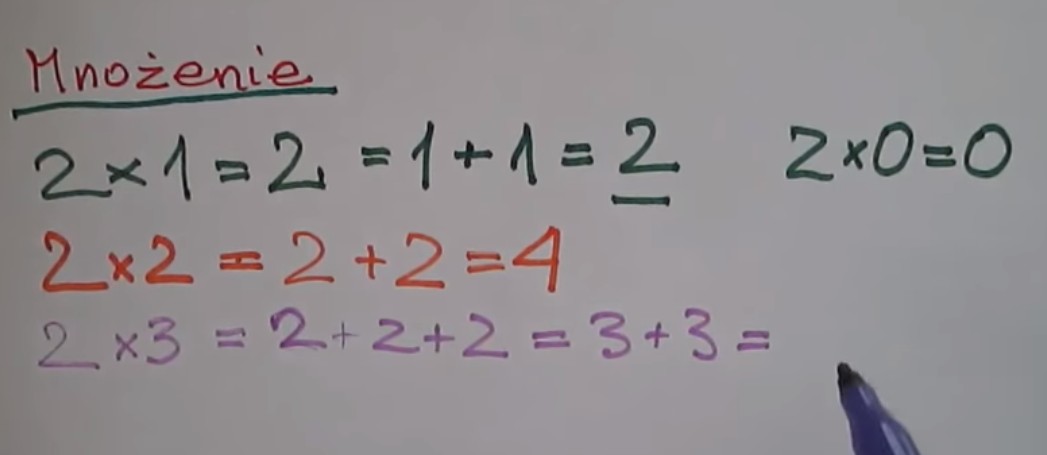 Mnożenie
2×1=2 =1+1=2 2×0=0
2×2=2+2=4
2×3=2+2+2=3+3=